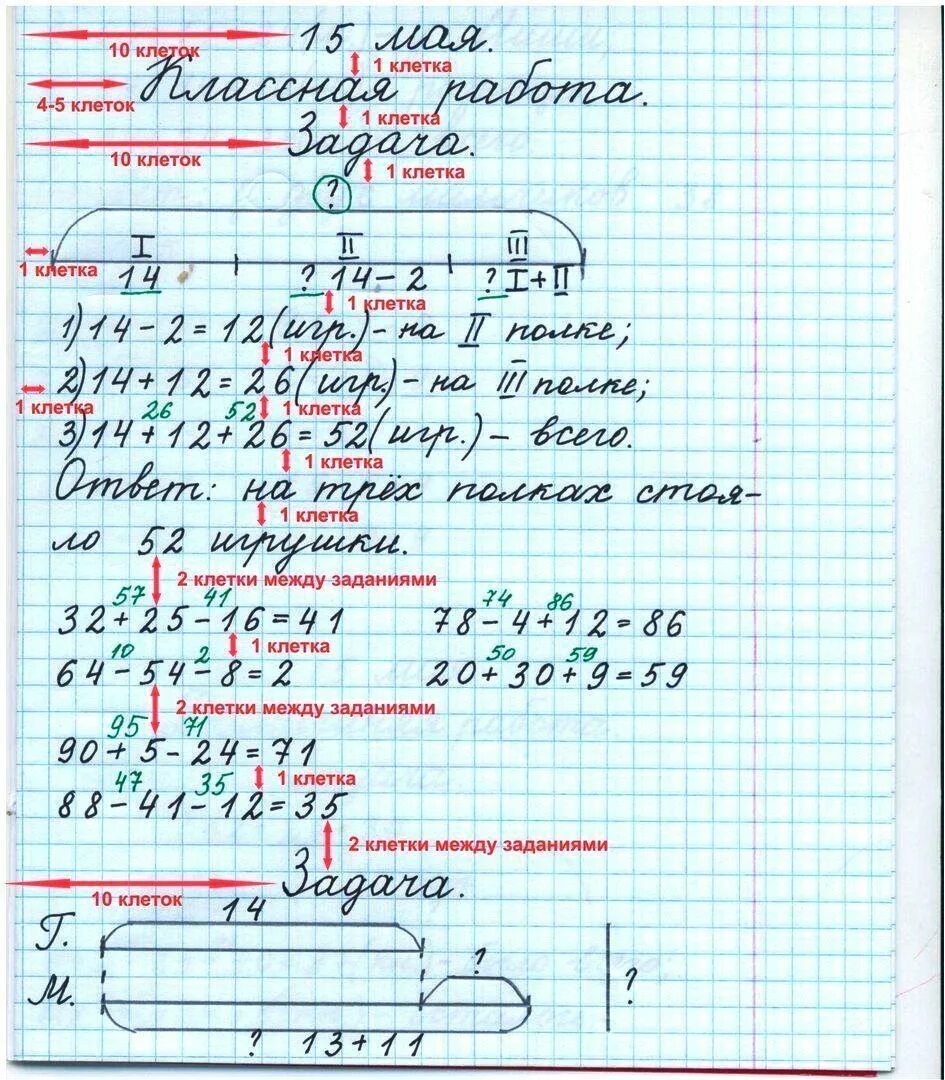 10 клеток 15 мая.
1 клетка
4-5 клеток Классная работа.
1 клетка
10 клеток Задача.
1 клетка
?
I II III
1 клетка 14 ? 14 - 2 ? I + II
1 клетка
1) 14 - 2 = 12 (игр.) - на II полке;
1 клетка
2) 14 + 12 = 26 (игр.) - на III полке;
1 клетка 1 клетка
26 52
3) 14 + 12 + 26 = 52 (игр.) - всего.
1 клетка
Ответ: на трёх полках стоя-
1 клетка
ло 52 игрушки.
2 клетки между заданиями
57 41 74 86
32 + 25 - 16 = 41 78 - 4 + 12 = 86
1 клетка
10 2 50 59
64 - 54 - 8 = 2 20 + 30 + 9 = 59
2 клетки между заданиями
95 71
90 + 5 - 24 = 71
1 клетка
47 35
88 - 41 - 12 = 35
2 клетки между заданиями
10 клеток Задача.
14
Г.
?
М. ?
? 13 + 11